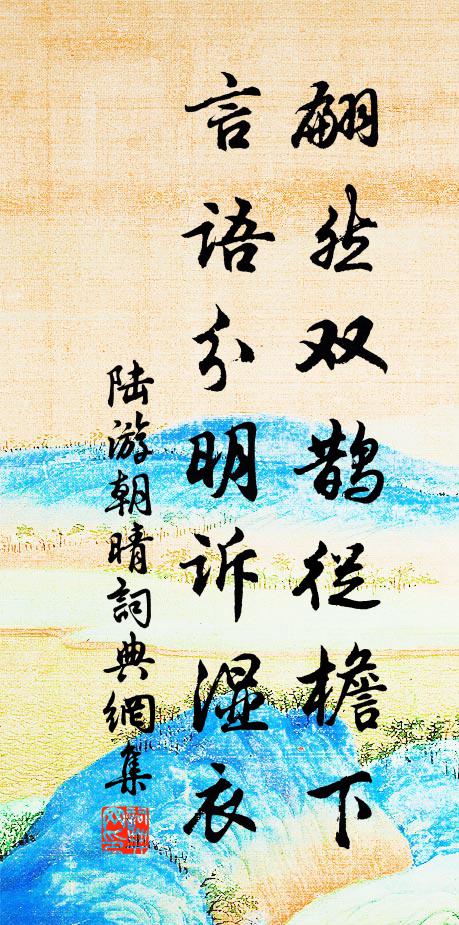 翩然双鹊從檐下
言语分明诉湿衣
陆游朝晴詞典網集